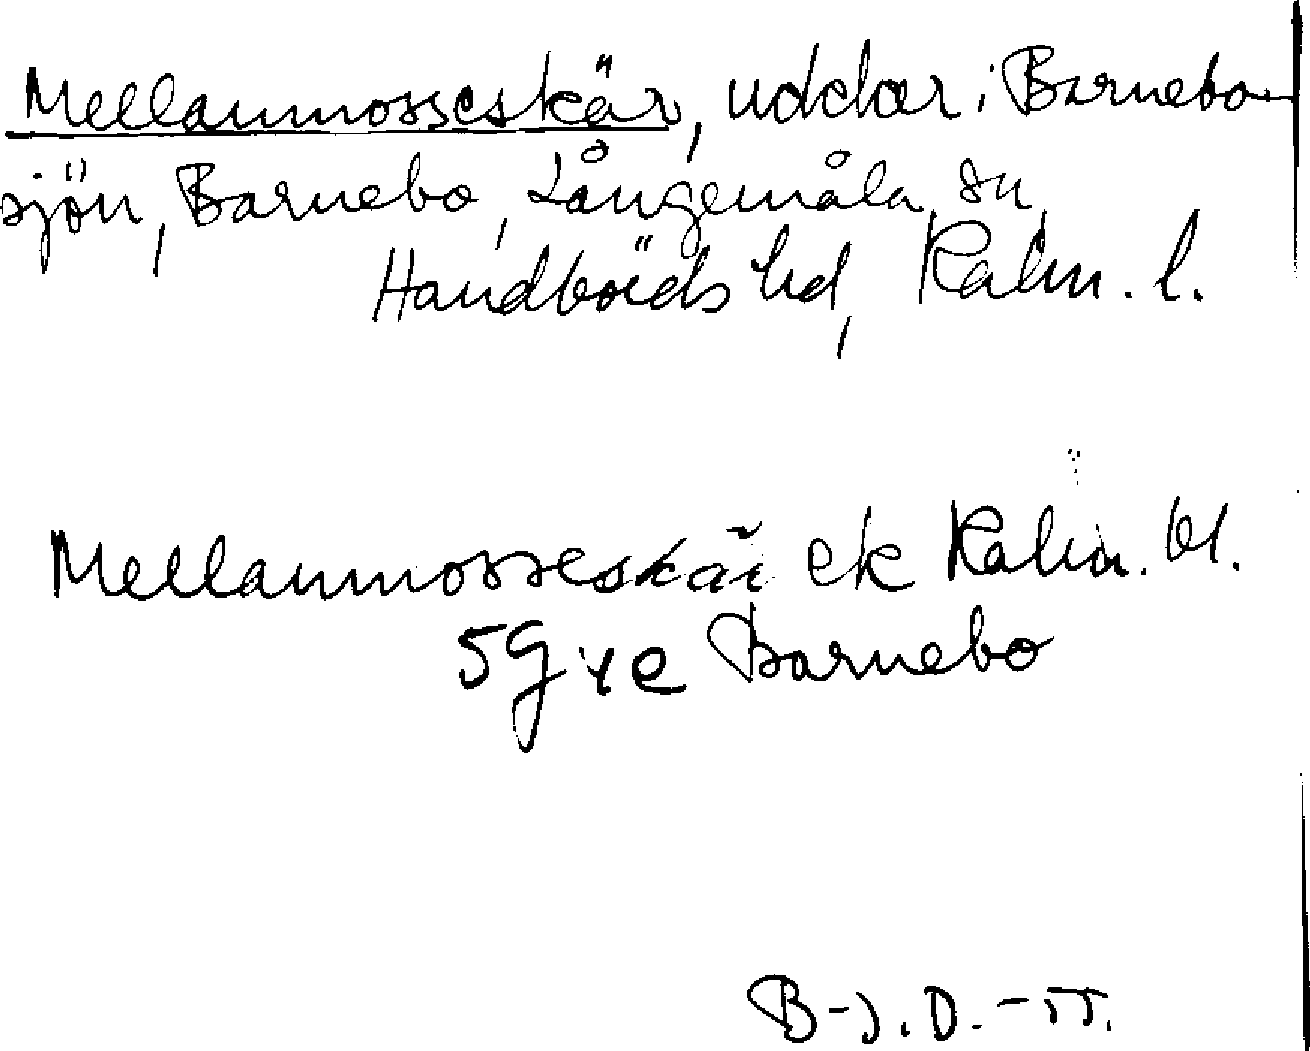 Mellanmosseskär, uddar i Barnebo-
sjön, Barnebo, Långemåla sn,
Handbörds hd, Kalm. l.
Mellanmosseskär ek Kalm. bl.
5G ye Barnebo
B-J. D. -55.